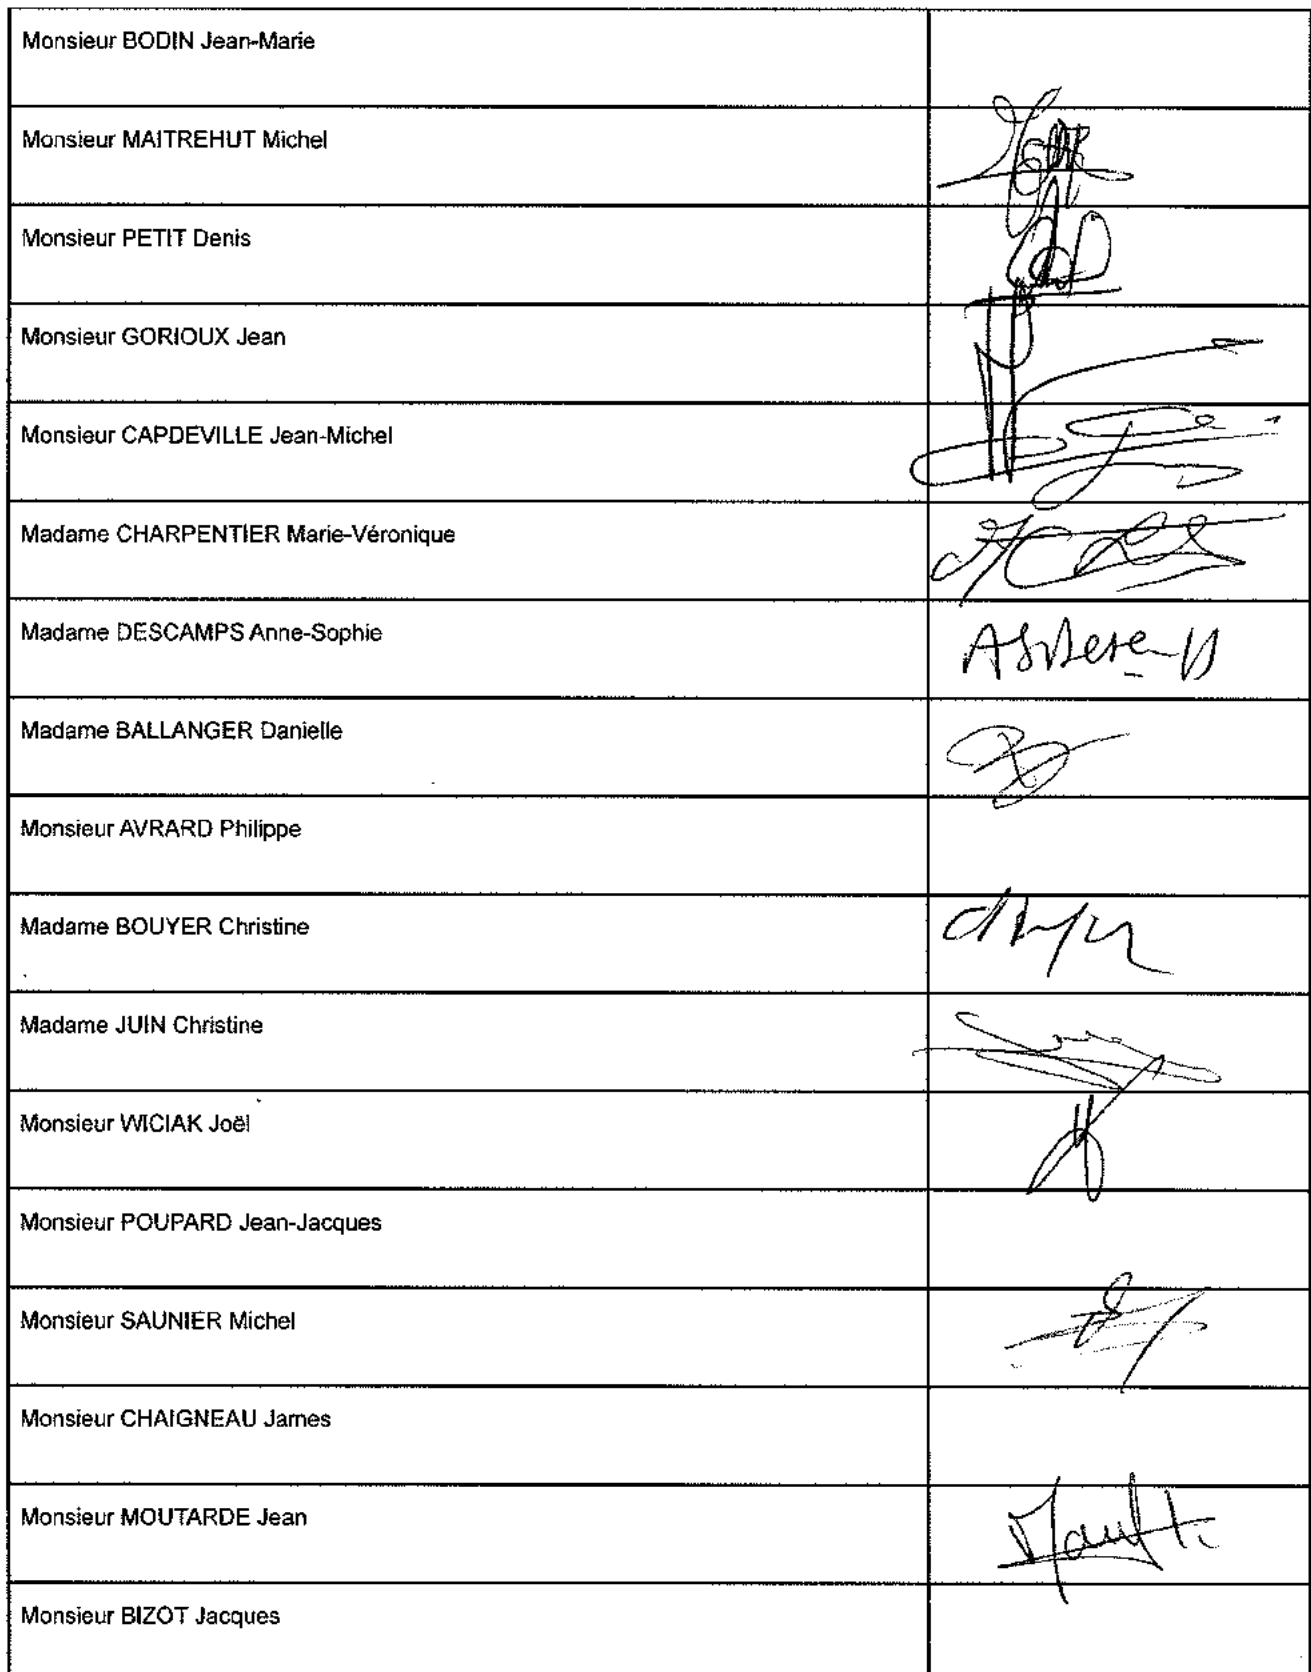 Monsieur BODIN Jean-Marie
Monsieur MAITREHUT Michel
Monsieur PETIT Denis
Monsieur GORIOUX Jean
Monsieur CAPDEVILLE Jean-Michel
Madame CHARPENTIER Marie-Véronique
Madame DESCAMPS Anne-Sophie
Madame BALLANGER Danielle
Monsieur AVRARD Philippe
Madame BOUYER Christine
Madame JUIN Christine
Monsieur WICIAK Joël
Monsieur POUPARD Jean-Jacques
Monsieur SAUNIER Michel
Monsieur CHAIGNEAU James
Monsieur MOUTARDE Jean
Monsieur BIZOT Jacques